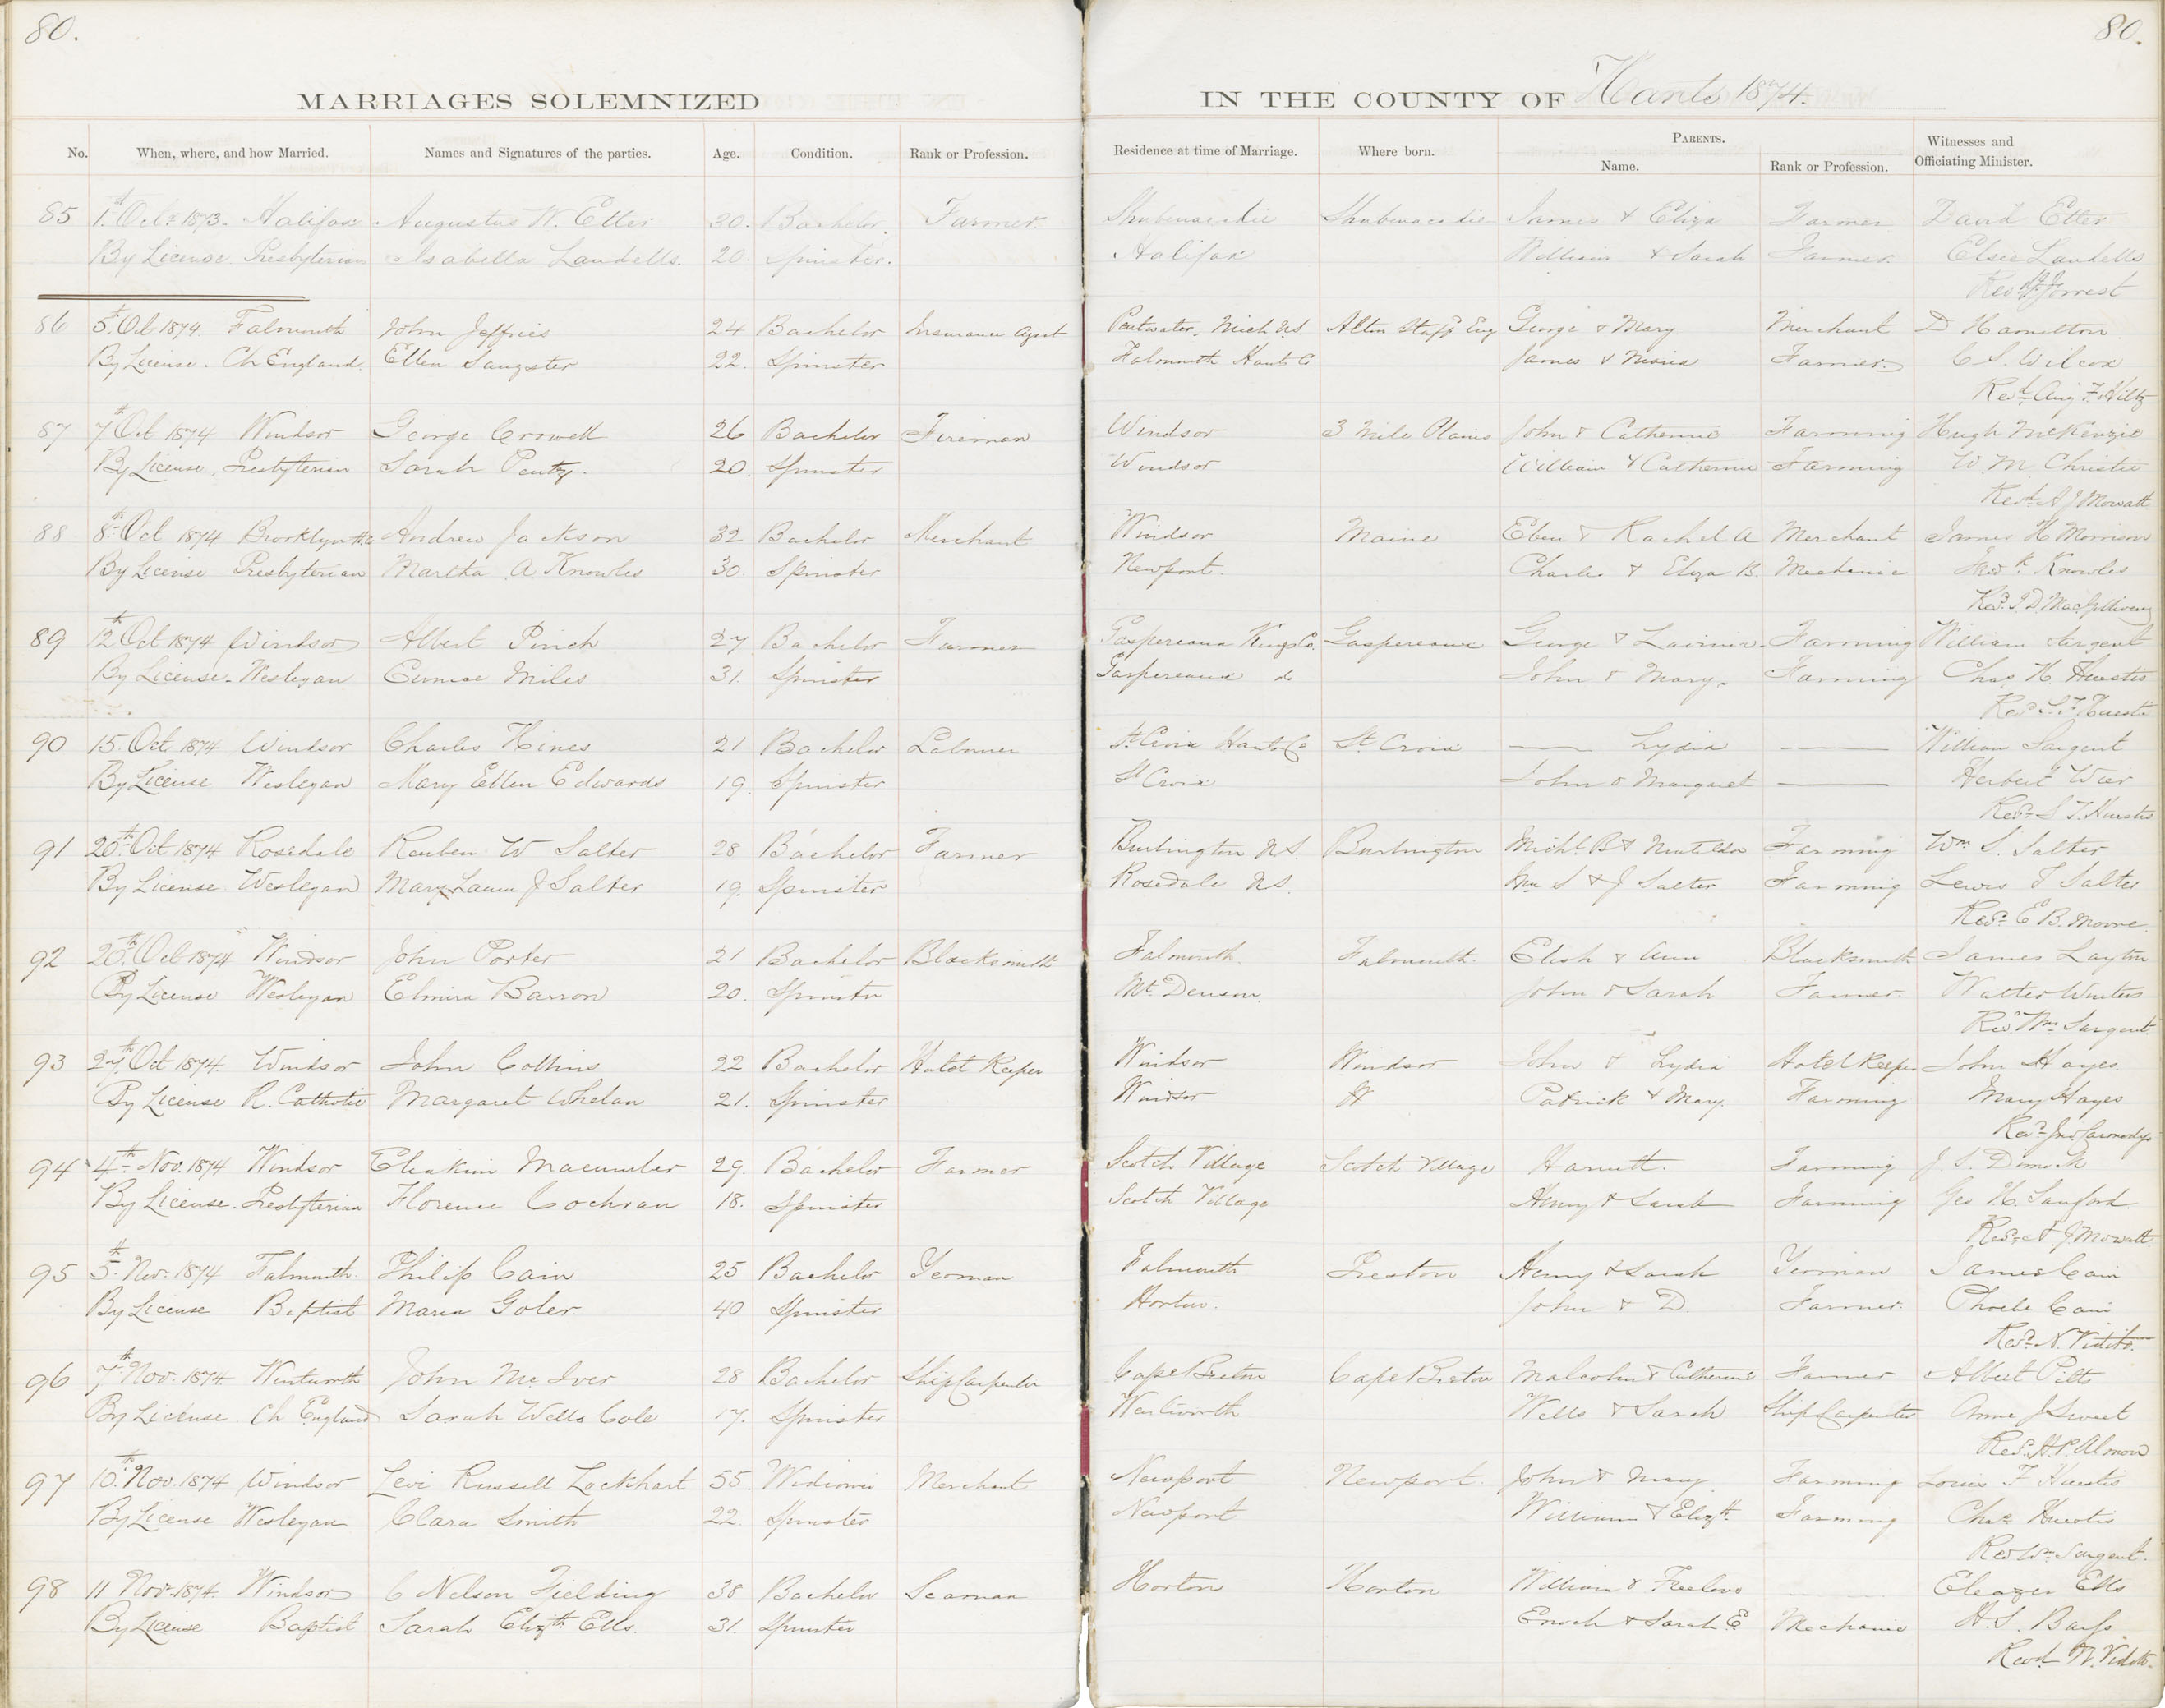 80.
80.
MARRIAGES SOLEMNIZED
IN THE COUNTY OF Hants 1874.
No. When, where, and how Married. Names and Signatures of the parties. Age. Condition. Rank or Profession. Residence at time of Marriage. Where born. PARENTS. Name. Rank or Profession. Witnesses and Officiating Minister.
85 1st Oct. 1873. Halifax Augustus W. Etter 30. Bachelor. Farmer. Shubenacadie Shubenacadie James & Eliza Farmer David Etter
By License Presbyterian Isabella Landells. 20. Spinster. Halifax William & Sarah Farmer. Elsie Landells
Revd Forrest
86 5th Oct 1874. Falmouth John Jeffries 24 Bachelor Insurance Agent Pentwater, Mich U.S. Alton Staff Eng George & Mary. Merchant D Hamilton
By License. Ch England. Ellen Sangster 22. Spinster Falmouth Hants Co James & Farmer. C. S. Wilcox
Revd Aug F. Hiltz
87 7th Oct 1874 Windsor George Crowell 26 Bachelor Fireman Windsor 3 Mile Plains John & Catherine Farming Hugh McKenzie
By License. Presbyterian Sarah Pentz. 20. Spinster Windsor William & Catherine Farming W. M. Christie
Revd A J Mowatt
88 8th Oct 1874 Brooklyn Andrew Jackson 32 Bachelor Merchant Windsor Maine Eben & Rachel A Merchant James H Morrison
By License Presbyterian Martha A. Knowles 30 Spinster Newport. Charles & Eliza B. Mechanic Fredk Knowles
Revd J. D. MacGillivray
89 12th Oct 1874 Windsor Albert Pinch 27 Bachelor Farmer Gaspereaux Kings Co. Gaspereaux George & Lavinia. Farming William Sargent
By License. Wesleyan Eunice Miles 31. Spinster Gaspereaux do John & Mary. Farming Chas H. Huestis
Revd S. F. Huestis
90 15. Oct. 1874 Windsor Charles Hines 21 Bachelor Labourer St. Croix Hants Co St. Croix —— Lydia —— William Sargent
By License Wesleyan Mary Ellen Edwards 19. Spinster St Croix John & Margaret —— Herbert Wier
Revd S F. Huestis
91 20th Oct 1874 Rosedale Reuben W Salter 28 Bachelor Farmer Burlington N.S. Burlington Michl. B & Matilda Farming Wm S. Salter
By License Wesleyan Mary Laura J Salter 19. Spinster Rosedale N.S. Wm S & J Salter Farming Lewis T Salter
Revd E. B. Moore.
92 20th Oct 1874 Windsor John Porter 21 Bachelor Blacksmith Falmouth. Falmouth. Elish & Ann Blacksmith James Layton
By License Wesleyan Elmira Barron 20. Spinster Mt. Denson. John & Sarah Farmer. Walter Winters
Revd Wm Sargent.
93 27th Oct 1874 Windsor John Collins 22 Bachelor Hotel Keeper Windsor Windsor John & Lydia Hotel Keeper John Hayes.
By License R. Catholic Margaret Whelan 21. Spinster Windsor W Patrick & Mary. Farming Mary Hayes
Revd Jno Carmody
94 4th Nov. 1874 Windsor Eliakim Macumber 29. Bachelor Farmer Scotch Village Scotch Village Harriett. Farming J. S. Dimock
By License. Presbyterian Florence Cochran 18. Spinster Scotch Village Henry & Sarah Farming Geo H. Sanford
Revd A J Mowatt.
95 5th Nov. 1874 Falmouth. Philip Cain 25 Bachelor Yeoman Falmouth Preston Henry & Sarah Yeoman James Cain
By License Baptist Maria Goler 40 Spinster Horton. John & D. Farmer. Phoebe Cain
Revd N. Vidito.
96 7th Nov. 1874. Wentworth John McIver 28 Bachelor Ship Carpenter Cape Breton Cape Breton Malcolm & Catherine Farmer Albert Pilt
By License. Ch England Sarah Wells Cole 17. Spinster Wentworth Wells & Sarah Ship Carpenter Anne J Sweet
Revd. H. P. Almon
97 10th Nov. 1874 Windsor Levi Russell Lockhart 55 Widower Merchant Newport Newport. John & Mary Farming Louis F Huestis
By License Wesleyan Clara Smith 22. Spinster Newport William & Elizth. Farming Chas Huestis
Rev Wm Sargent.
98 11 Nov. 1874. Windsor C Nelson Fielding 38 Bachelor Seaman Horton Horton William & Freelove Eleazer Ells
By License Baptist Sarah Elizth Ells. 31. Spinster Enoch & Sarah E. Mechanic H. S. Bass
Revd N. Vidito.